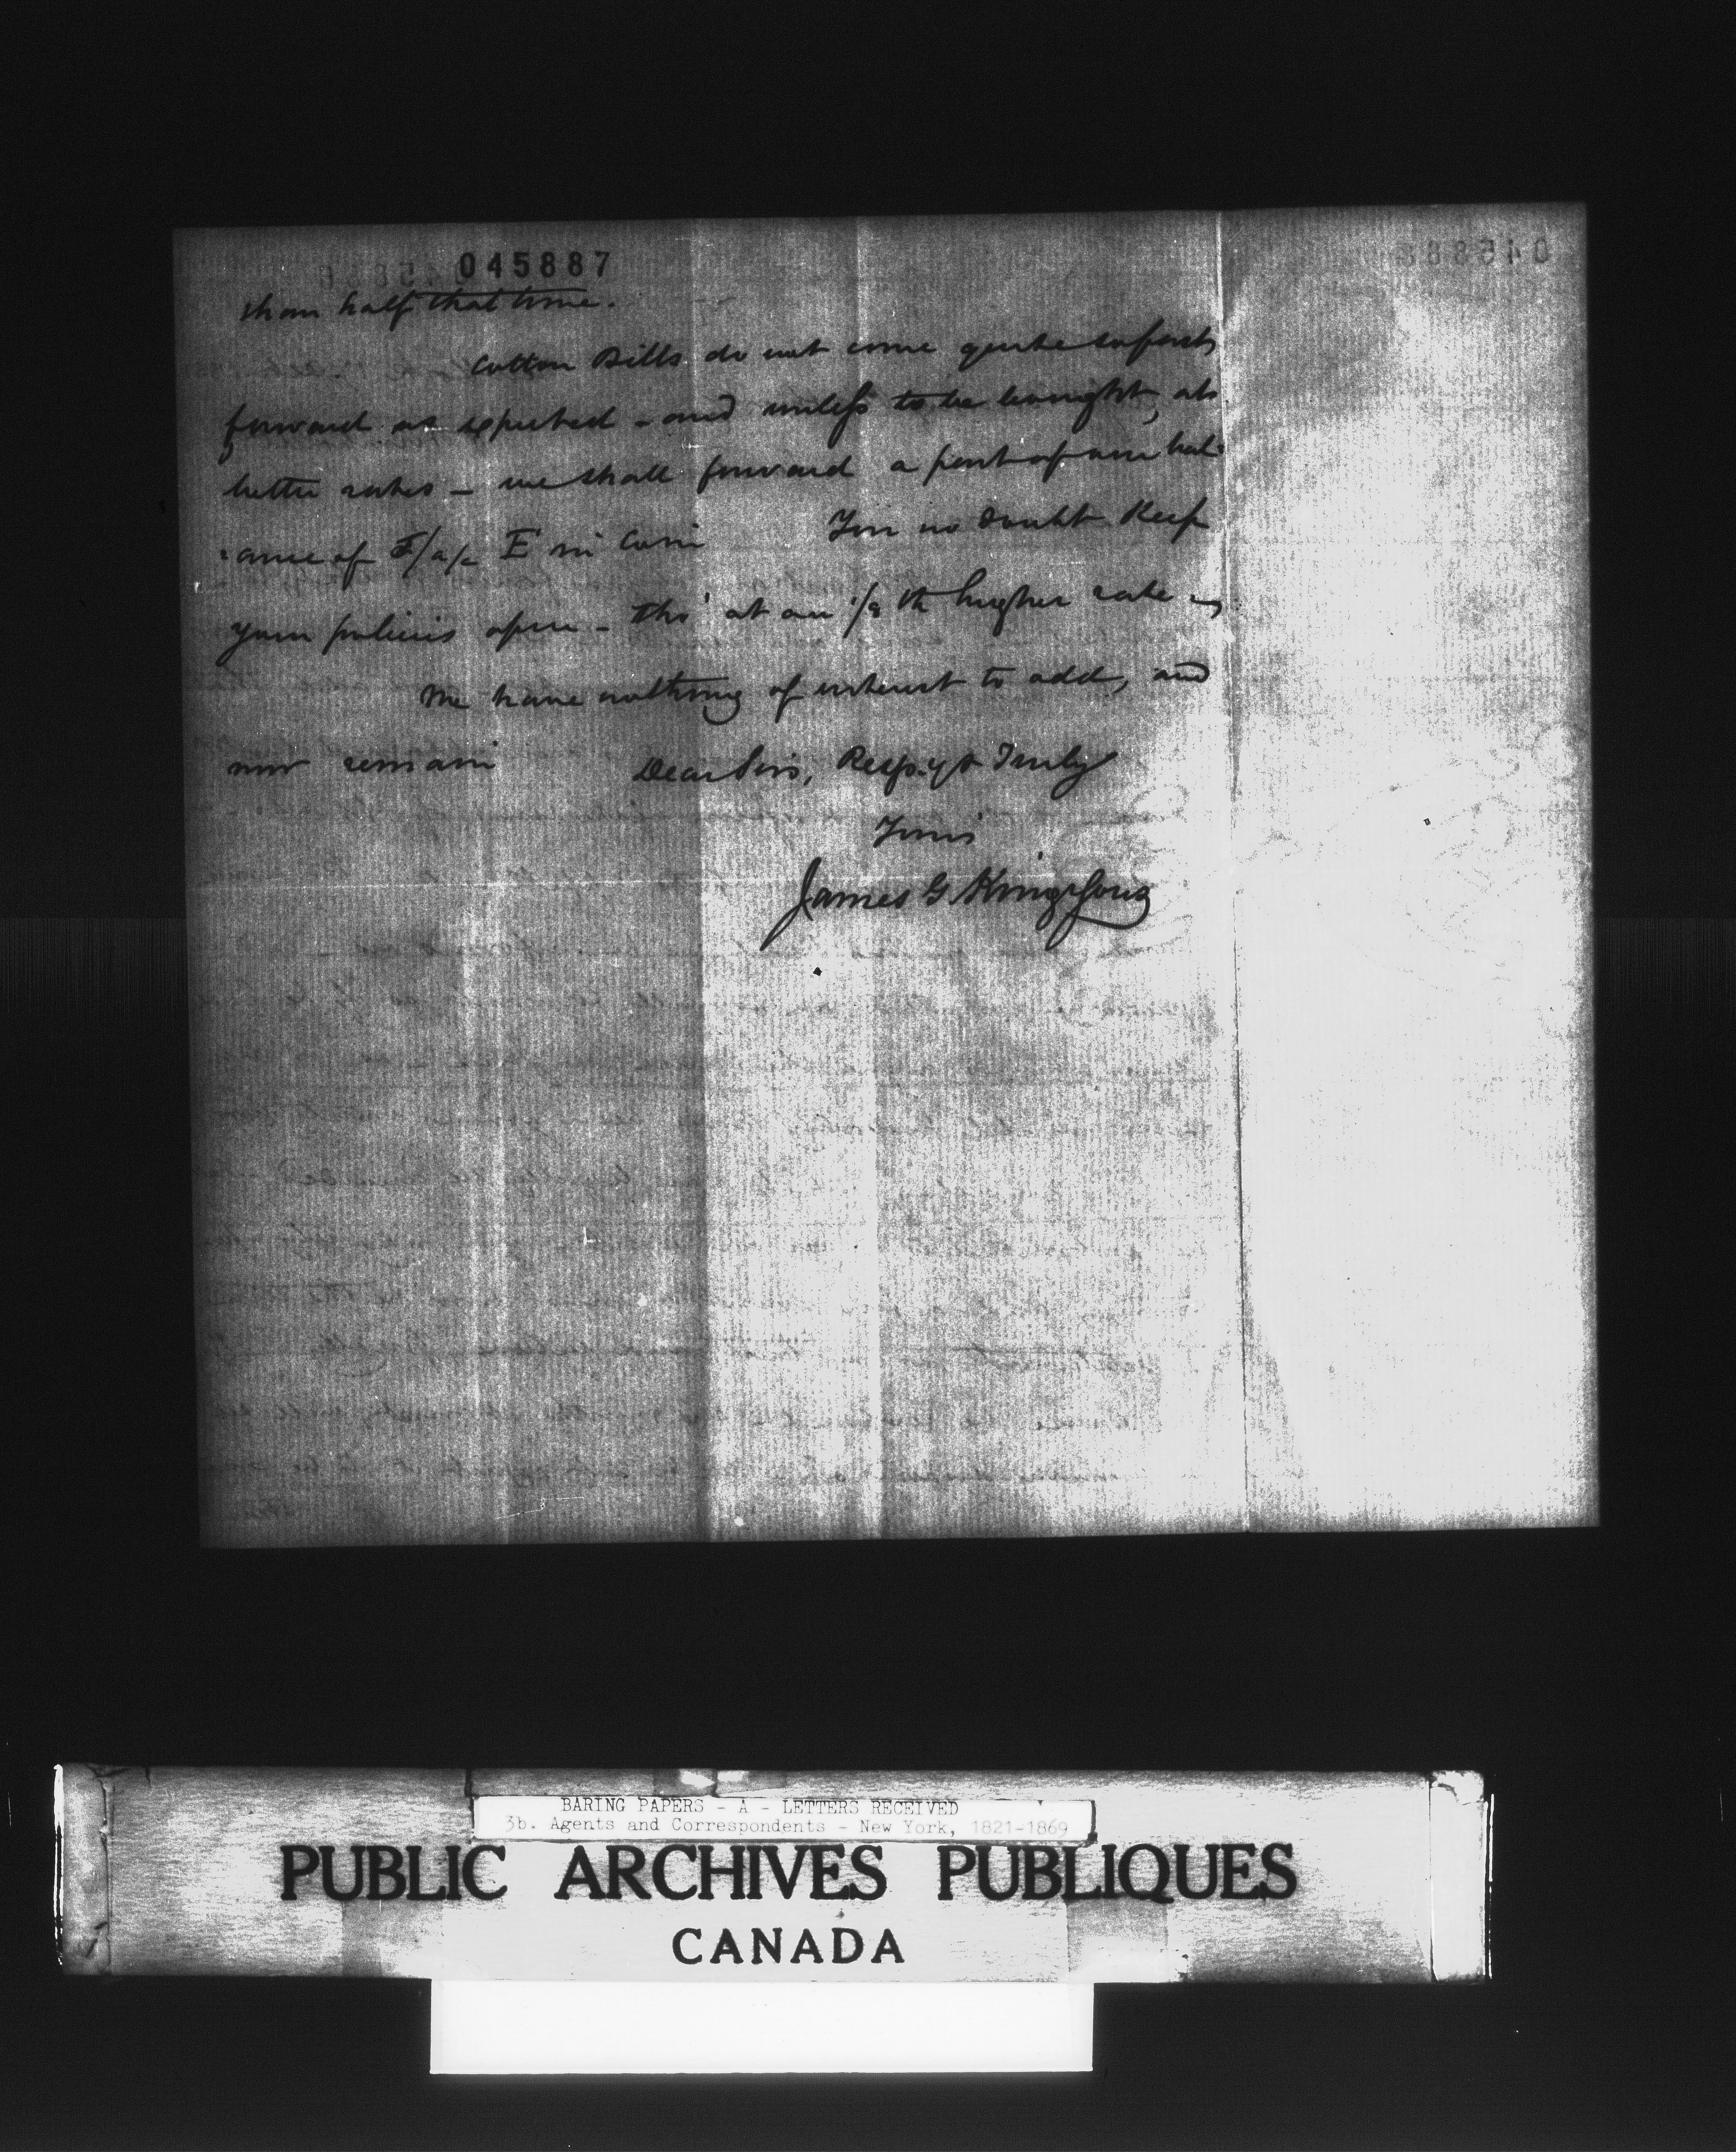 045887
than half that time.
Cotton Bills do not come quite so fast,
forward as expected - and unless to be bought, at
better rates - we shall forward a part of our bal-
-ance of F/a/c E in Coin You no doubt keep
your policies open - tho' at an 1/8 th higher rate
We have nothing of interest to add, and
now remain Dear Sirs, Resp.y & Truly
Yours
James G King & Sons
BARING PAPERS - A - LETTERS RECEIVED
3b. Agents and Correspondents - New York, 1821-1869
PUBLIC ARCHIVES PUBLIQUES
CANADA